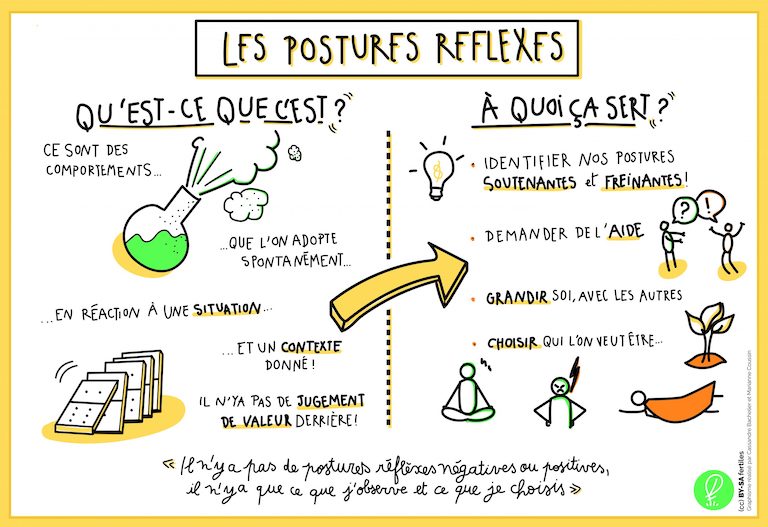 LES POSTURES REFLEXES
QU'EST-CE QUE C'EST ?
CE SONT DES
COMPORTEMENTS...
...QUE L'ON ADOPTE
SPONTANÉMENT...
...EN RÉACTION À UNE SITUATION...
...ET UN CONTEXTE
DONNÉ !
IL N'YA PAS DE JUGEMENT
DE VALEUR DERRIÈRE !
À QUOI ÇA SERT ?
• IDENTIFIER NOS POSTURES
SOUTENANTES et FREINANTES !
• DEMANDER DE L'AIDE
? !
• GRANDIR SOI, AVEC LES AUTRES
• CHOISIR QUI L'ON VEUT ÊTRE...
« Il n'y a pas de postures réflèxes négatives ou positives,
il n'y a que ce que j'observe et ce que je choisis »
(cc) BY-SA fertiles
Graphisme réalisé par Cassandre Bachelier et Marianne Cousin